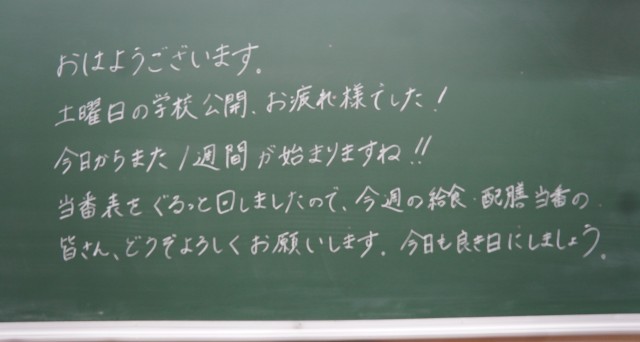 おはようございます。
土曜日の学校公開、お疲れ様でした!
今日からまた1週間が始まりますね!!
当番表をぐるっと回しましたので、今週の給食・配膳当番の
皆さん、どうぞよろしくお願いします。今日も良き日にしましょう。